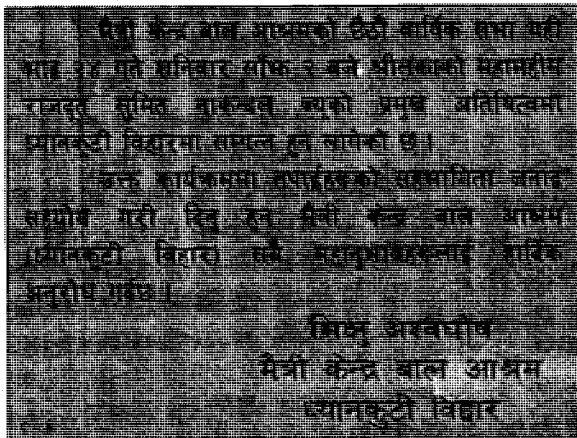 मैत्री केन्द्र बाल आश्रमको छैठौं वार्षिक सभा यही
भाद्र १४ गते शनिबार साँझ २ बजे श्रीलंकाको महामहीम
राजदूत सुमित नाकन्दल ज्यूको प्रमुख अतिथित्वमा
ध्यानकुटी विहारमा सम्पन्न हुन लागेको छ ।
उक्त कार्यक्रममा तपाईहरुको सहभागिता जनाई
सहयोग गरी दिनु हुन मैत्री केन्द्र बाल आश्रम
(ध्यानकुटी विहार) सबै महानुभावहरुलाई हार्दिक
अनुरोध गर्दछ ।
भिक्षु अश्वघोष
मैत्री केन्द्र बाल आश्रम
ध्यानकुटी विहार